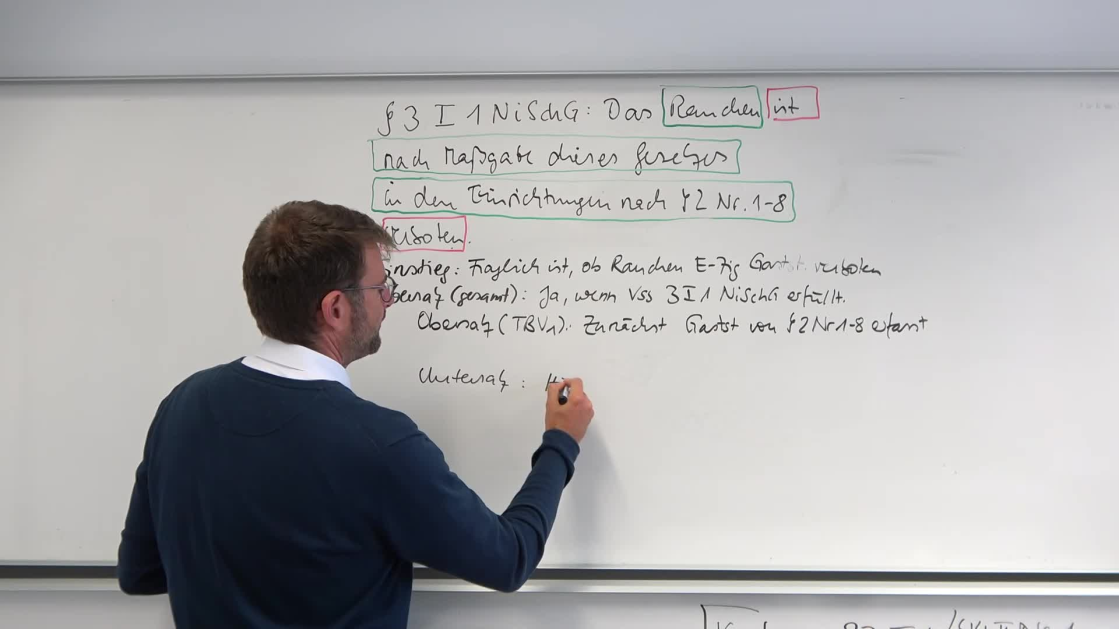 § 3 I 1 NiSchG: Das Rauchen ist
nach Maßgabe dieses Gesetzes
in den Einrichtungen nach § 2 Nr. 1-8
verboten.
instieg: Fraglich ist, ob Rauchen E-Zig Gastst. verboten
bersatz (gesamt): Ja, wenn Vss 3 I 1 NiSchG erfüllt.
Obersatz (TBV1): Zunächst Gastst von § 2 Nr 1-8 erfasst
Untersatz : Hi